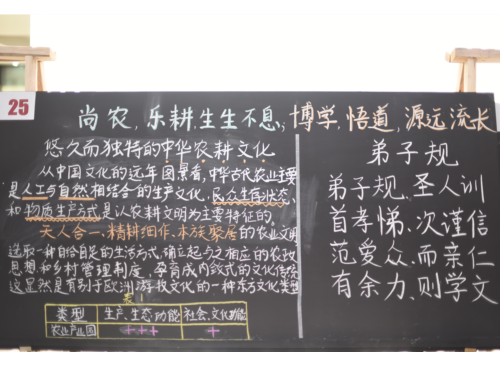 25
尚农,乐耕,生生不息;博学,悟道,源远流长
悠久而独特的中华农耕文化
从中国文化的远年图景看,中华古代农业主要
是人工与自然相结合的生产文化,民众生存状态,
和物质生产方式是认农耕文明为主要特征的。
天人合一,精耕细作,本族聚居的农业文明
选取一种自给自足的生活方式,确立起与之相应的农政
思想和乡村管理制度,孕育成内敛式的文化传统
这显然是有别于欧洲游牧文化的一种东方文化类型
表1
类型 生产、生态功能 社会、文化功能
农业产业园 +++ +
弟子规
弟子规,圣人训
首孝悌,次谨信
范爱众,而亲仁
有余力,则学文